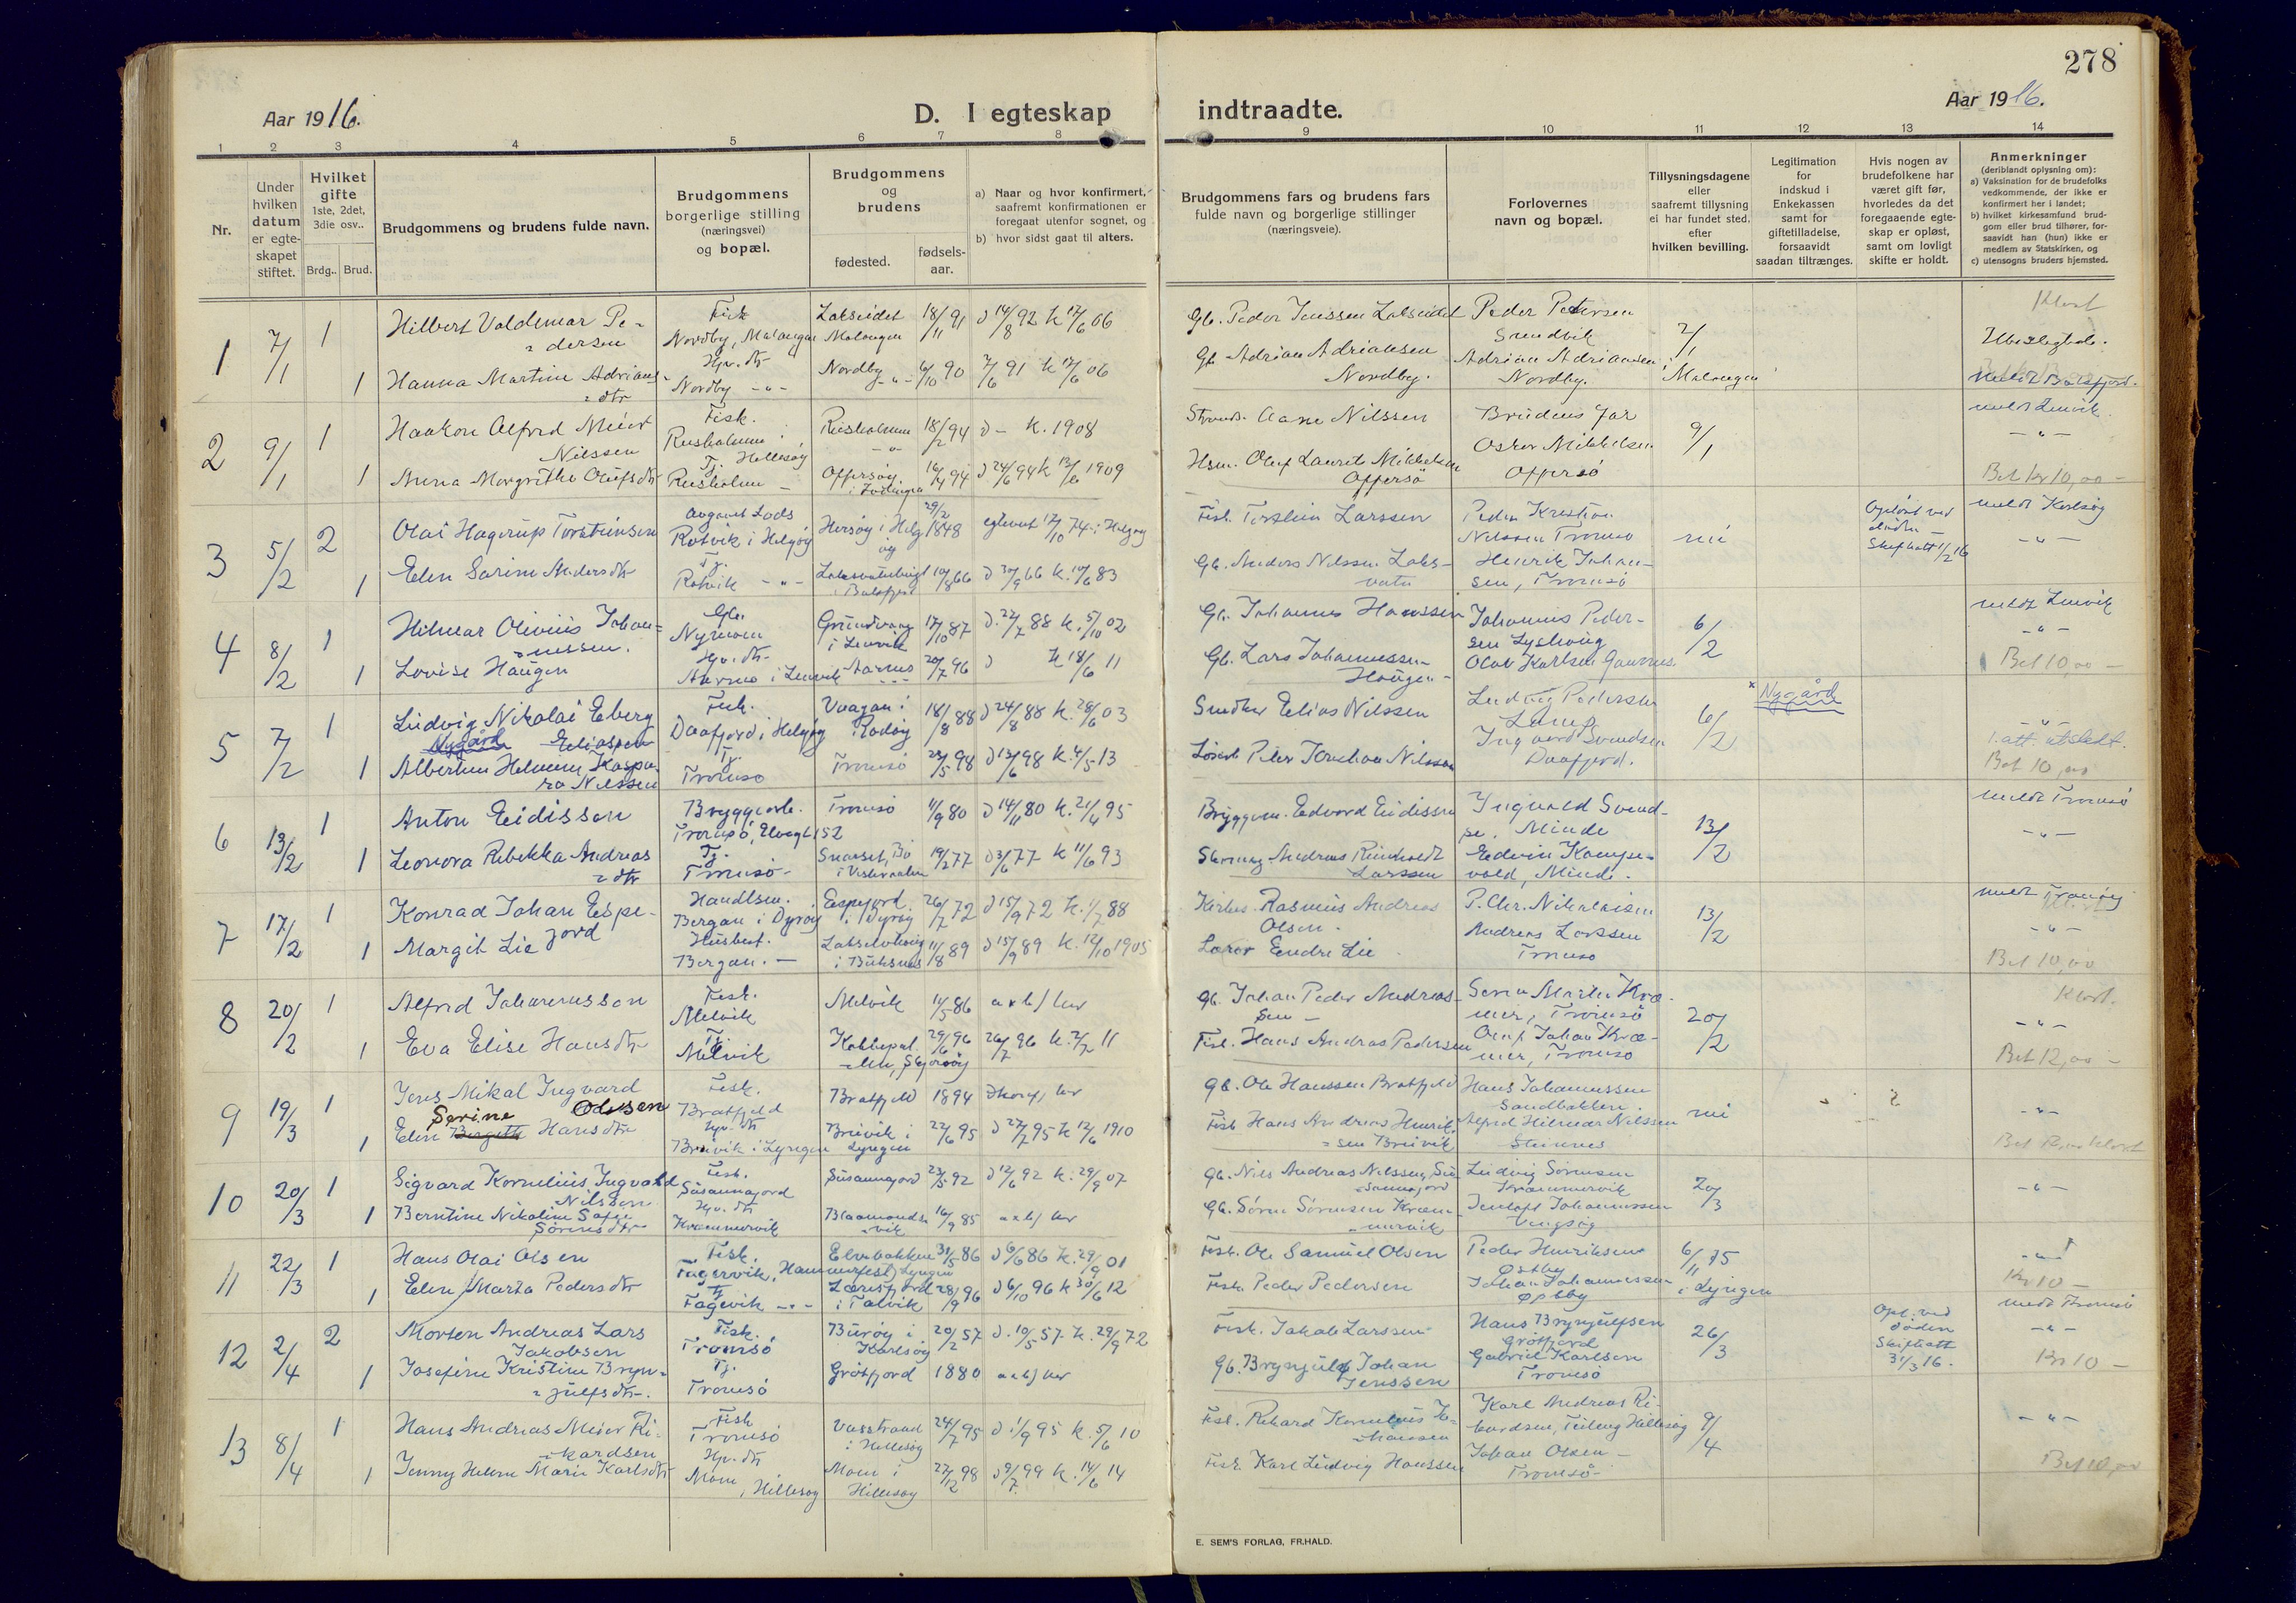 278
Aar 1916.
D. I egteskap indtraadte.
Aar 1916.
1 2 3 4 5 6 7 8 9 10 11 12 13 14
Nr.
Under hvilken datum er egte-skapet stiftet.
Hvilket gifte 1ste, 2det, 3die osv..
Brdg.. Brud.
Brudgommens og brudens fulde navn.
Brudgommens borgerlige stilling (næringsvei) og bopæl.
Brudgommens og brudens
fødested. fødsels-aar.
a) Naar og hvor konfirmert, saafremt konfirmationen er foregaat utenfor sognet, og
b) hvor sidst gaat til alters.
Brudgommens fars og brudens fars fulde navn og borgerlige stillinger (næringsveie).
Forlovernes navn og bopæl.
Tillysningsdagene eller saafremt tillysning ei har fundet sted, efter hvilken bevilling.
Legitimation for indskud i Enkekassen samt for giftetilladelse, forsaavidt saadan tiltrænges.
Hvis nogen av brudefolkene har været gift før, hvorledes da det foregaaende egte-skap er opløst, samt om lovligt skifte er holdt.
Anmerkninger (deriblandt oplysning om):
a) Vaksination for de brudefolks vedkommende, der ikke er konfirmert her i landet;
b) hvilket kirkesamfund brud-gom eller brud tilhører, for-saavidt han (hun) ikke er medlem av Statskirken, og
c) utensogns bruders hjemsted.
1 7/1 1 Hilbert Valdemar Pe-dersen Fisk Nordby, Malangen Lakseidet Malangen 18/11 91 d 14/8 92 k 17/6 06 Gb. Peder Jenssen Lakseidet Peder Petersen Sandvik 2/1
1 Hanna Martine Adrians-dtr Hpv. dtr Nordby -"- Nordby -"- 6/10 90 7/6 91 k 17/6 06 Gb Adrian Adriansen Nordby. Adrian Adriansen Nordby. Malangen Ubeslegtede. meldt Balsfjord.
2 9/1 1 Haakon Alfred Meier Nilssen Fisk. Rusholmen i Hillesøy Rusholmen -"- 18/2 94 d - k. 1908 Aane Nilssen Brudens far 9/1 meldt Lenvik.
1 Anna Margrethe Olufsdtr Tj. Rusholmen - Offersøy i Lødingen 16/4 94 d 24/6 94 k 13/6 1909 Hsm. Oluf Laurits Mikkelsen Offersø Oskar Mikkelsen Offersø -"- Bet Kr 10,00 -
3 5/2 2 Olai Hagerup Torsteinsen Lods Rotvik i Helgøy 29/2 1848 17/10 74 i Helgøy Fisk. Torstein Larssen Peder Kristian Nilssen Tromsø nei Opløst ved døden Skifteatt 1/2 16 meldt Karlsøy
1 Elen Sarine Andersdtr Tj. Rotvik -"- i Balsfjord 10/8 66 d 30/9 66 k. 10/6 83 Gb. Anders Nilssen Laks-vatn Henrik Johan-sen, Tromsø -"-
4 8/2 1 Hilmar Olivius Johan-nessen. Gb. Nymoen Grundvaag i Lenvik 17/10 87 d. 22/7 88 k. 5/10 02 Gb. Johannes Hanssen Johannes Peder-sen 6/2 meldt Lenvik
1 Lovise Haugen Hpv. dtr Aarnes i Lenvik Aarnes -"- 20/7 96 d k 18/6 11 Gb. Lars Johannessen Haugen - Olav Karlsen -"- Bet 10,00 -
5 7/2 1 Ludvig Nikolai Eberg Eliassen Nygård Fisk. Daafjord i Helgøy Vaagan i Rødøy 18/8 88 d 24/8 88 k. 28/6 03 Snedker Elias Nilssen Ludvig Pedersen 6/2 * Nygård -"-
1 Albertine Helmine Kaspa-ra Nilssen Tj. Tromsø Tromsø 28/5 98 d 13/6 98 k. 4/5 13 Peter Kristian Nilssen Ingvard Svendsen Daafjord. 1. att. utstedt. Bet 10,00
6 13/2 1 Anton Eidissen Bryggearb. Tromsø, Elvegt 152 Tromsø 11/9 80 d 14/11 80 k. 21/4 95 Bryggem. Edvard Eidissen Ingvald Svend-sen, Minde 13/2 meldt Tromsø
1 Leonora Rebekka Andreas-dtr Tj. Tromsø - Bø i Vesteraalen 19/2 77 d 3/6 77 k 11/6 93 Andreas Reinholdt Larssen Edvin Kampe-vold, Minde. -"-
7 17/2 1 Konrad Johan Espe-jord Handlsm. Bergan i Dyrøy Espejord i Dyrøy 26/7 72 d 15/9 72 k. 1/7 88 Rasmus Andreas Olsen. P. Chr. Nikolaisen 13/2 meldt Tranøy
1 Margit Lie Husbest. Bergan. - i Buksnes 11/8 89 d 15/9 89 k. 12/10 1905 Lærer Endre Lie Andreas Larssen Tromsø -"- Bet 10,00
8 20/2 1 Alfred Johannessen Fisk. Melvik Melvik 11/5 86 a x b) her Gb. Johan Peder Andreas-sen - Søren Martin Kræ-mer, Tromsø 20/2 Klart.
1 Eva Elise Hansdtr Tj. Melvik Skjervøy 29/6 96 26/7 96 k. 2/7 11 Fisk. Hans Andreas Pedersen Oluf Johan Kræ-mer, Tromsø -"- Bet 12,00 -
9 19/3 1 Jens Mikal Ingvard Olsen Fisk. Bratfjeld Bratfjeld 1894 her Gb. Ole Hanssen Bratfjeld Hans Johannessen Sandbakken. nei
1 Elen Serine Hansdtr Hpv. dtr Breivik i Lyngen Breivik i Lyngen 22/6 95 d 27/7 95 k 12/6 1910 Fisk Hans Andreas Henrik-sen Breivik Alfred Hilmar Nilssen Steinnes -"-
10 20/3 1 Sigvard Kornelius Ingvald Nilssen Fisk. Susannajord Susannajord 23/5 92 d 12/6 92 k. 29/9 07 Gb. Nils Andreas Nilssen, Su-sannajord Ludvig Sørensen Kræmmervik 20/3 -"-
1 Berntine Nikoline Sofie Sørensdtr Hpv. dtr Kræmmervik 16/9 85 a x b) her Gb. Søren Sørensen Kræm-mervik Jentoft Johannessen Vengsøy
11 22/3 1 Hans Olai Olsen Fisk. Fagervik, Hammerfest Elvebakken Lyngen 31/5 86 d 6/6 86 k. 29/9 01 Fisk. Ole Samuel Olsen Peder Henriksen Østby 6/11 15 i Lyngen -"-
1 Elen Marta Pedersdtr Tj Fagervik -"- i Talvik 28/9 96 d 6/10 96 k 30/6 12 Fisk. Peder Pedersen Johan Johannessen Østby Kr 10 -
12 2/4 2 Morten Andreas Lars Jakobsen Fisk. Tromsø Burøy i Karlsøy 20/2 57 d. 10/5 57. k. 29/9 72 Fisk. Jakob Larssen Hans Brynjulfsen Grøtfjord 26/3 Opl. ved døden Skifteatt 31/3 16. meldt Tromsø
1 Josefine Kristine Bryn-julfsdtr. Tj. Tromsø Grøtfjord 1880 a x b) her Gb. Brynjulf Johan Jenssen Gabriel Karlsen Tromsø -"- Kr 10 -
13 8/4 1 Hans Andreas Meier Ri-kardsen Fisk Tromsø Vasstrand i Hillesøy 24/7 95 d 1/9 95 k. 5/6 10 Fisk. Rikard Kornelius Jo-hansen Karl Andreas Ri-kardsen, Hillesøy 9/4 -"-
1 Jenny Helene Marie Karlsdtr Hpv. dtr Moen, Hillesøy Moen i Hillesøy 27/12 98 d 9/7 99 k. 14/6 14 Fisk. Karl Ludvig Hanssen Johan Olsen - Tromsø - Bet 10,00
E. SEM'S FORLAG, FR.HALD.